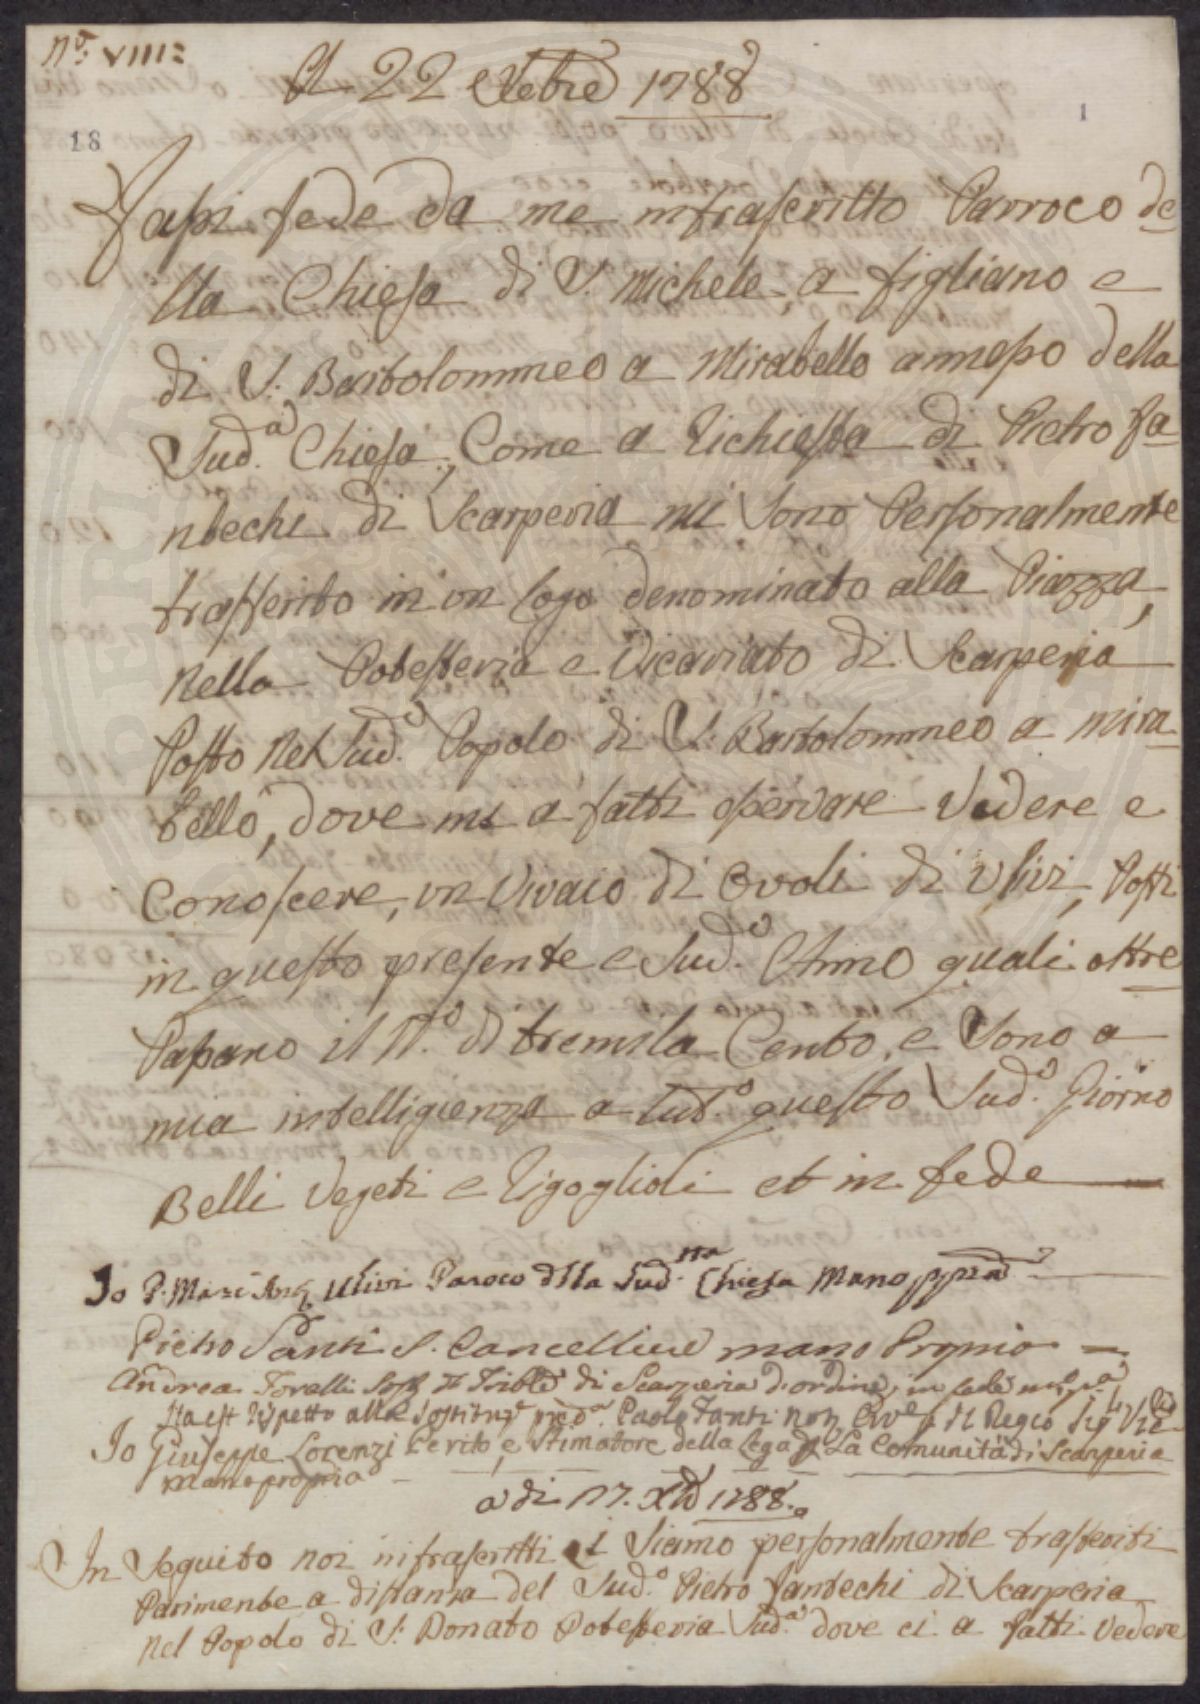 N.º VIII:
A 22 8tebre 1788
18
1
Fassi fede da me infrascritto Parroco de
lla Chiesa di S. Michele a figliano e
di S: Bartolommeo a Mirabello annesso della
Sud.a Chiesa, Come a richiesta di Pietro fa
ntechi di Scarperia mi Sono Personalmente
trasferito in un logo denominato alla Piazza,
Nella Potesteria e Vicariato di Scarperia
Posto Nel Sud.o Popolo di S: Bartolommeo a Mira
bello, dove mi a fatti osservare Vedere e
Conoscere, un Vivaio di Ovoli di Ulivi, Posti
in questo presente e Sud.o Anno quali oltre
Passano il N.o di tremila Cento, e Sono a
mia intelligienza a tut.o questo Sud.o Giorno
Belli Vegeti e rigogliosi et in fede
Io P. Ulivi Paroco dlla Sud.tta Chiesa Mano ppria
Pietro Santi S. Cancelliere mano Propria
Andrea Torelli di Scarperia d'ordine, in fede
Ita est rispetto alla Paolo Fanti Not. Il Regio
Io Giuseppe Lorenzi Perito, e Stimatore della Lega La Comunità di Scarperia
mano propria
a di 17. Xbre 1788.
In Seguito noi infrascritti ci Siamo personalmente trasferiti
Parimente a distanza del Sud.o Pietro fantechi di Scarperia
Nel Popolo di S: Donato Potesteria Sud.a dove ci a fatti Vedere